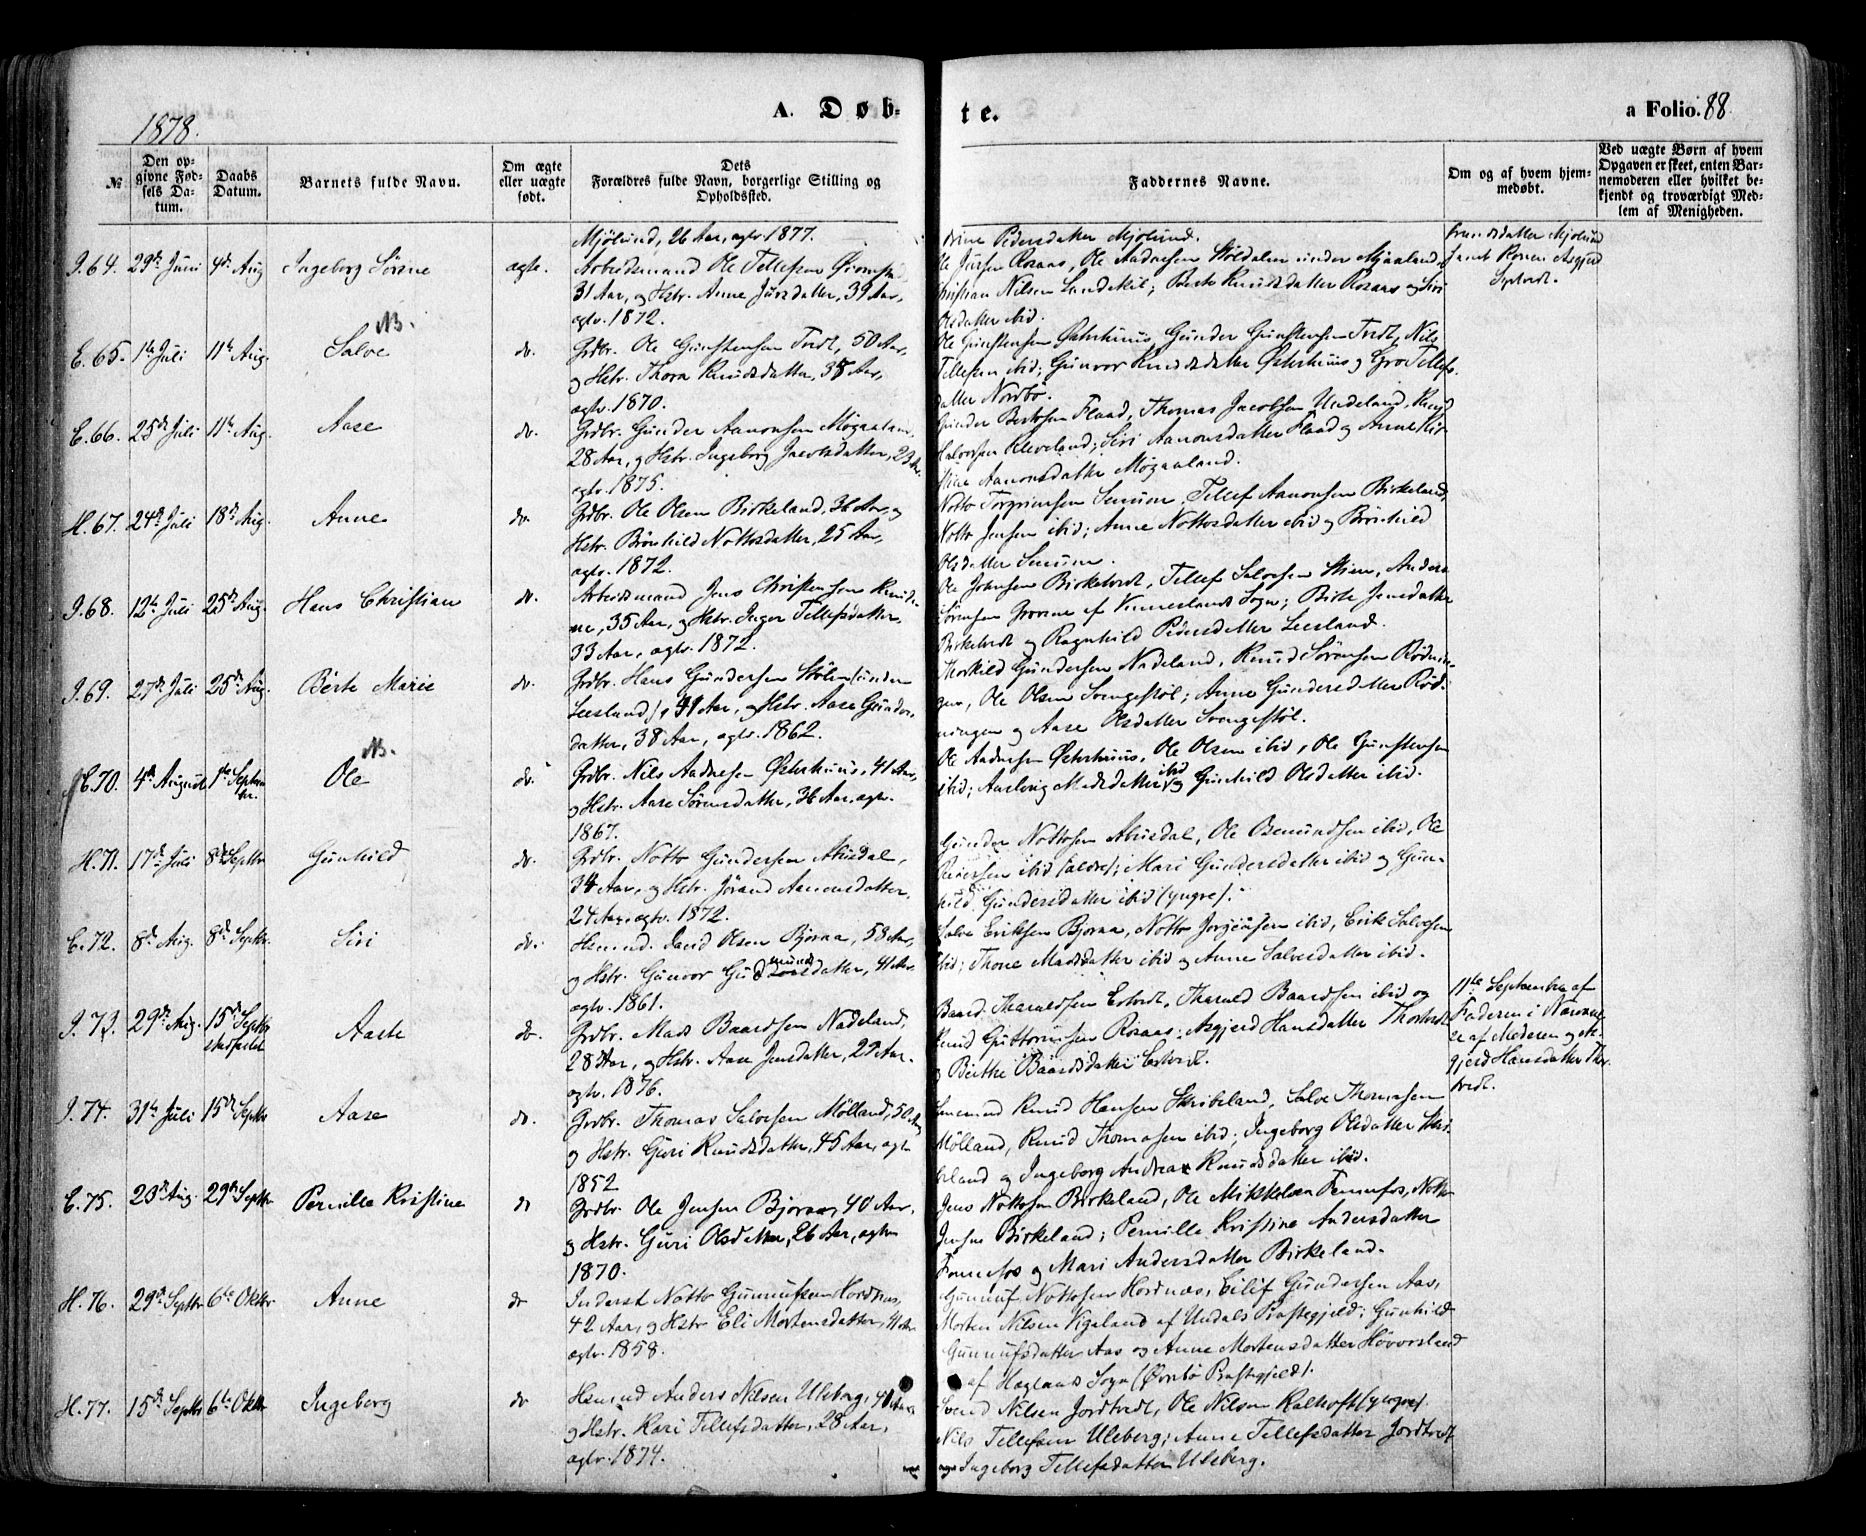 1878.
A. Døb-
te.
a Folio. 88
№
Den op-
givne Fød-
sels Da-
tum.
Daabs
Datum.
Barnets fulde Navn.
Om ægte
eller uægte
født.
Dets
Forældres fulde Navn, borgerlige Stilling og
Opholdssted.
Faddernes Navne.
Om og af hvem hjem-
medøbt.
Ved uægte Børn af hvem
Opgaven er skeet, enten Bar-
nemoderen eller hvilket be-
kjendt og troværdigt Med-
lem af Menigheden.
Mjølund, 26 Aar, agtv. 1877.
Pedersdatter Mjølund.
J. 64. 29de Juni 4de Aug Ingeborg Sørine ægte.
Arbeidsmand Ole Tellefsen
31 Aar, og Hstr. Anne Jursdatter, 39 Aar,
agtv. 1872.
Ole Jursen Rosaas, Ole Aadnesen Støldalen under Mjaaland
Christian Nilsen Landskil; Berte Knudsdatter Rosaas og Siri
Olsdatter ibid.
E. 65. 1ste Juli 11te Aug. Salve NB. do.
Grdbr. Ole Gunstensen Tvedt, 50 Aar,
og Hstr. Thora Knudsdatter, 38 Aar,
agtv. 1870.
Ole Gunstensen Østerhuus, Gunder Gunstensen Tvedt, Nils
Tellefsen ibid; Gunvor Knudsdatter Østerhuus og Gro Tellefs-
datter Nordbø.
E. 66. 25de Juli 11te Aug. Aase do.
Grdbr. Gunder Aanonsen Møgaaland,
28 Aar, og Hstr. Ingeborg Jacobsdatter, 23 Aar,
agtv. 1875.
Gunder Bertosen Flaad, Thomas Jacobsen Undeland, Knud
Salvesen Kleveland; Siri Aanonsdatter Flaad og Anne Kir-
stine Aanonsdatter Møgaaland.
H. 67. 24de Juli 18de Aug. Anne do.
Grdbr. Ole Olsen Birkeland, 36 Aar, og
Hstr. Brønhild Nottosdatter, 25 Aar,
agtv. 1872.
Notto Torgrimsen Senum, Tellef Aanonsen Birkeland,
Notto Jensen ibid; Anne Nottosdatter ibid og Brønhild
Olsdatter Senum.
J. 68. 12te Juli 25de Aug. Hans Christian do.
Arbeidsmand Jens Christensen
35 Aar, og Hstr. Inger Tellefsdatter,
33 Aar, agtv. 1872.
Ole Johnsen Birketvedt, Tellef Salvesen Stien, Anders
Sørensen Grovene af Vennesland Sogn; Birte Jensdatter
Birketvedt og Ragnhild Pedersdatter Leesland.
J. 69. 27de Juli 25de Aug. Berte Marie do.
Grdbr. Hans Gundersen Stølen (under
Leesland), 41 Aar, og Hstr. Aase Gunders-
datter, 38 Aar, agtv. 1862.
Thorkild Gundersen Nadeland, Knud Sørensen Rødnin-
gen, Ole Olsen Svengestøl; Anne Gundersdatter Rød-
ningen og Aase Olsdatter Svengestøl.
E. 70. 4de August 1ste Septem-
br. Ole NB. do.
Grdbr. Nils Aadnesen Østerhuus, 41 Aar,
og Hstr. Aase Sørensdatter, 36 Aar, agtv.
1867.
Ole Aadnesen Østerhuus, Ole Olsen ibid, Ole Gunstensen
ibid; Aaslaug Madsdatter ibid og Gunhild Olsdatter ibid.
H. 71. 17de Juli 8de Septbr Gunhild do.
Grdbr. Notto Gundersen Abusdal,
34 Aar, og Hstr. Jørand Aanonsdatter,
24 Aar, agtv. 1872.
Gunder Nottosen Abusdal, Ole Osmundsen ibid, Ole
Pedersen ibid (ældre); Mari Gundersdatter ibid og Gun-
hild Gundersdatter ibid (yngre).
E. 72. 8de Aug. 8de Septbr. Siri do.
Olsen Bjoraa, 58 Aar,
og Hstr. Gunvor Gudmundsdatter, 41 Aar
agtv. 1861.
Salve Eriksen Bjoraa, Notto Jorgensen ibid, Erik Salvesen
ibid; Thone Madsdatter ibid og Anne Salvesdatter ibid.
J. 73. 29de Aug. 15de Septbr
stadfæstet Aaste do.
Grdbr. Mads Baardsen Nadeland,
28 Aar, og Hstr. Aase Jensdatter, 27 Aar.
agtv. 1876.
Baard Tharaldsen Estvedt, Tharald Baardsen ibid og
Knud Guttormsen Rosaas; Asgjerd Hansdatter Thortvedt
og Berthe Baardsdatter Estvedt.
11te September af
Faderen i Nærvæ-
relse af Moderen og As-
gjerd Hansdatter Thor-
tvedt.
J. 74. 31te Juli 15de Septbr Aase do.
Grdbr. Thomas Salvesen Mølland, 50 Aar
og Hstr. Guri Knudsdatter, 45 Aar, agtv
1852
Lensmand Knud Hansen Skribeland, Salve Thomasen
Mølland, Knud Thomasen ibid; Ingeborg Olsdatter Skri-
beland og Ingeborg Andrea Knudsdatter ibid.
E. 75. 23de Aug. 29de Septbr Pernille Kristine do
Grdbr. Ole Jensen Bjoraa, 40 Aar,
og Hstr. Guri Olsdatter, 26 Aar, agtv
1870.
Jens Nottosen Birkeland, Ole Mikkelsen Fennefos, Notto
Jensen Birkeland; Pernille Kristine Andersdatter
Fennefos og Mari Andersdatter Birkeland.
H. 76. 29de Septbr 6te Oktbr Anne do
Inderst Notto Gunnufsen Hordnæs,
42 Aar, og Hstr Eli Mortensdatter, 41 Aar
agtv. 1858.
Gunnuf Nottosen Hordnæs, Eilif Gundersen Aas,
Morten Nilsen Vigeland af Undals Præstegjeld; Gunhild
Gunnufsdatter Aas og Anne Mortensdatter Høversland
af Haglands Sogn (Øvrebø Præstegjeld).
H. 77. 15de Septbr 6te Oktbr Ingeborg do
Husmand Anders Nilsen Uleberg, 40 Aar
og Hstr. Kari Tellefsdatter, 28 Aar,
agtv. 1874.
Svend Nilsen Jordtvedt, Ole Nilsen Kalhoft (yngre),
Nils Tellefsen Uleberg; Anne Tellefsdatter Jordtvedt
og Ingeborg Tellefsdatter Uleberg.